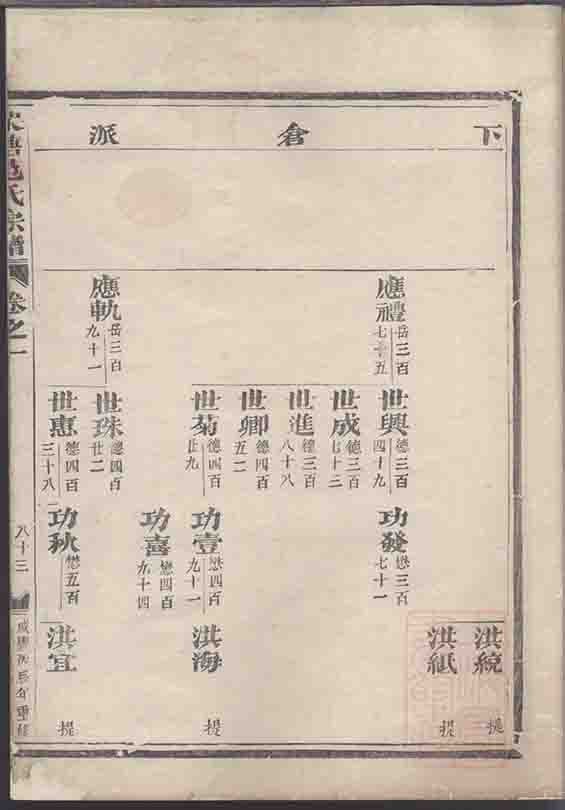 下倉派
應禮 岳三百七十五
應軌 岳三百九十一
世興 德三百四十九
世成 德三百七十三
世進 德三百八十八
世卿 德四百五二
世菊 德四百廿九
世珠 德四百廿二
世惠 德四百三十八
功發 懋三百七十一
功壹 懋四百九十一
功喜 懋四百九十四
功秋 懋五百
洪統 提
洪紙 提
洪海 提
洪宜 提
氏宗譜
卷之一
八十三
年重修